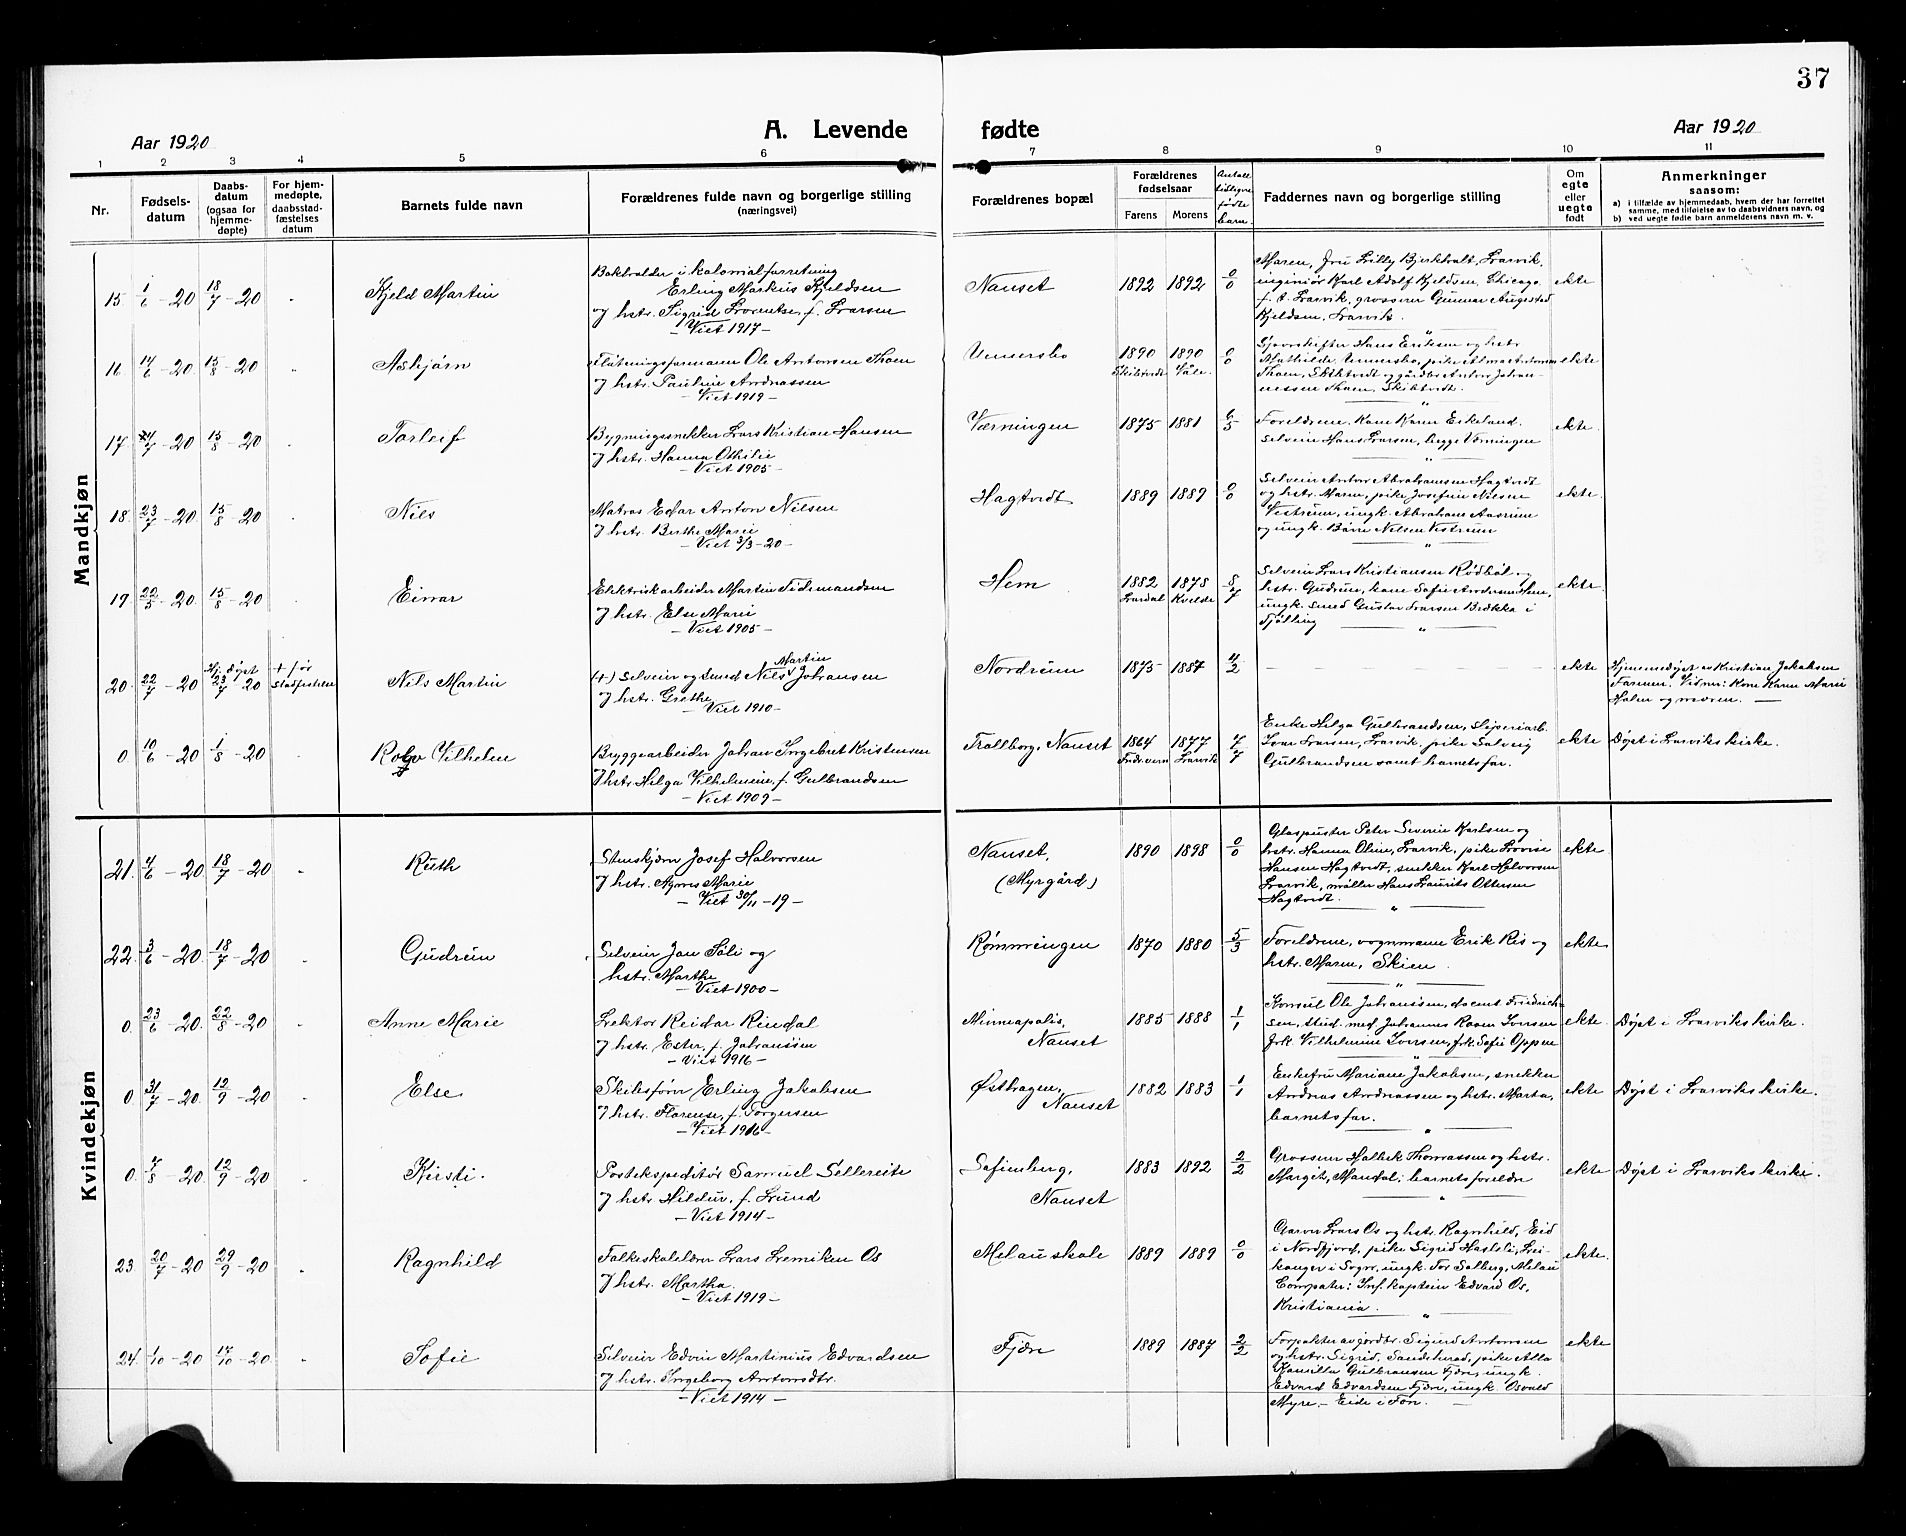 37
Aar 1920
A. Levende
fødte
Aar 1920
1 2 3 4 5 6 7 8 9 10 11
Nr.
Fødsels-
datum
Daabs-
datum
(ogsaa for
hjemme-
døpte)
For hjem-
medøpte,
daabsstad-
fæstelses
datum
Barnets fulde navn
Forældrenes fulde navn og borgerlige stilling
(næringsvei)
Forældrenes bopæl
Forældrenes
fødselsaar
Farens Morens
Antall
tidligere
fødte
barn.
Faddernes navn og borgerlige stilling
Om
egte
eller
uegte
født
Anmerkninger
saasom:
a) i tilfælde av hjemmedaab, hvem der har forrettet
samme, med tilføielse av to daabsvidners navn, og
b) ved uegte fødte barn anmelderens navn m. v.
Mandkjøn
15 1/6 - 20 18/7 - 20 Kjeld Martin
Bokholder i kolonialforretning
Erling Markus Kjeldsen
og hstr. Sigrid Lorentse, f. Larsen
- Viet 1917 -
Nanset 1892 1892 0/0
Moren, fru Lilly Bjerkholt, Larvik,
ingeniør Karl Adolf Kjeldsen, Chicago
f. t. Larvik, grosserer Gunnar Augestad
Kjeldsen, Larvik.
ekte
16 14/6 - 20 15/8 - 20 Asbjørn
Fløtningsformann Ole Antonsen Thoen
og hstr. Pauline Andreassen
- Viet 1919 -
Unnersbo 1890 1890 0/0
Skibtvedt Våle.
Hans Eriksen og hstr.
Mathilde, Unnersbo, pike Alma Antonsen
Thoen, Skibtvedt og gårdbr. Anton Johan-
nessen Thoen, Skibtvedt.
ekte
17 24/7 - 20 15/8 - 20 Torleif
Bygningssnekker Lars Kristian Hansen
og hstr. Hanna Othilie
- Viet 1905 -
Værningen 1875 1881 6/5
Foreldrene, kone Karen Eikeland.
selveier Hans Larsen, begge Værningen
ekte.
18. 23/7 - 20 15/8 - 20 Nils
Matros Edar Anton Nilsen
og hstr. Berthe Marie
- Viet 3/3 - 20 -
Hagtvedt 1889 1889 0/0
Selveier Anton Abrahamsen Hagtvedt
og hstr. Maren, pike Josefine Nilsen
Vestrum, ungk. Abraham Aasrum
og ungk. Børre Nilsen Vestrum
ekte.
19. 22/5 - 20 15/8 - 20 Einar
Elektriskarbeider Martin Tidemandsen
og hstr. Else Marie
- Viet 1905 -
Hem 1882 1878 8/7
Lardal Kvelde
Selveier Lars Kristiansen Rødbøl og
hstr. Gudrun, kone Sofie Andersen Hem,
ungk. smed Gustav Larsen Brekke i
Tjølling
ekte.
20. 22/7 - 20 Hj. døpt 23/7 20 + før stadfestelsen Nils Martin
(+) Selveier og smed Nils Martin Johansen
og hstr. Grethe
- Viet 1910 -
Nordrum 1875 - 1887 4/2
ekte
Hjemmedøpt av Kristian Jakobsen
Farmen. Vidner: Kone Karen Marie
Holm og moren.
0. 10/6 - 20 1/8 - 20 Rolf Vilhelm
Bryggearbeider Johan Ingebret Kristensen
og hstr. Helga Vilhelmine, f. Gulbrandsen
- Viet 1909 -
Trollborg, Nanset 1864 1877 7/7
Fredevern Larvik
Enke Helga Gulbrandsen, sliperiarb.
Ivar Larsen, Larvik, pike Solveig
Gulbrandsen samt barnets far.
ekte
Døpt i Larviks kirke.
Kvindekjøn
21. 4/6 - 20 18/7 - 20 Ruth
Stenskjører Josef Halvorsen
og hstr. Agnes Marie
- Viet 30/11 - 19 -
Nanset,
(Myrgård)
1890 1898 0/0
Glaspuster Peter Severin Karlsen og
hstr. Hanna Oline, Larvik, pike Lovise
Hansen Hagtvedt, snekker Karl Halvorsen
Larvik, møller Hans Laurits Ottersen
Hagtvedt.
ekte
22. 3/6 - 20 18/7 - 20 Gudrun
Selveier Jan Søli og
hstr. Marthe
- Viet 1900 -
Rømmingen 1870 1880 5/3
Foreldrene, vognmann Erik Ris og
hstr. Maren, Skien.
ekte
0. 23/6 - 20. 22/8 - 20 Anne Marie
Lektor Reidar Rindal
og hstr. Ester, f. Johanssen
- Viet 1916 -
Minneapolis,
Nanset
1885 1888 1/1
Konsul Ole Johanssen, docent Friedrich-
sen, stud. med. Johannes Raven Iversen
frk. Vilhelmine Iversen, frk. Sofie Oppen
ekte.
Døpt i Larviks kirke.
0. 31/7 - 20 12/9 - 20 Else
Skibsfører Erling Jakobsen
og hstr. Florense, f. Torgersen
- Viet 1916 -
Østhagen,
Nanset
1882 1883 1/1
Enkefru Mariane Jakobsen, snekker
Andreas Andreassen og hstr. Marta,
barnets far.
ekte
Døpt i Larviks kirke.
0. 7/8 - 20 12/9 - 20 Kirsti.
Postekspeditør Samuel Sellereite
og hstr. Hildur, f. Lund
- Viet 1914 -
Sofienberg,
Nanset
1883 1892 2/2
Grosserer Holbek Thomassen og hstr.
Margit, Mandal; barnets foreldre
ekte
Døpt i Larviks kirke.
23. 20/7 - 20 29/9 - 20 Ragnhild
Folkeskolelærer Lars Lemiken Os
og hstr. Martha.
- Viet 1919 -
Melau skole 1889 1889 0/0
Garver Lars Os og hstr. Ragnhild, Eid
i Nordfjord, pike Sigrid Hasleli, Lei-
kanger i Sogn, ungk. Tor Solberg, Melau
Compater: Inf. kaptein Edvard Os,
Kristiania.
ekte.
24. 1/10 - 20 17/10 - 20. Sofie
Selveier Edvin Martinius Edvardsen
og hstr. Ingeborg Antonsdtr.
- Viet 1914 -
Fjære 1889 1887 2/2
Forpakter av jordtr. Sigurd Antonsen
og hstr. Sigrid, Sandeherad, pike Alla
Kamilla Gulbransen Fjære, ungk.
Edvard Edvardsen Fjære, ungk. Osvald
Myre - Eide i Fon.
ekte